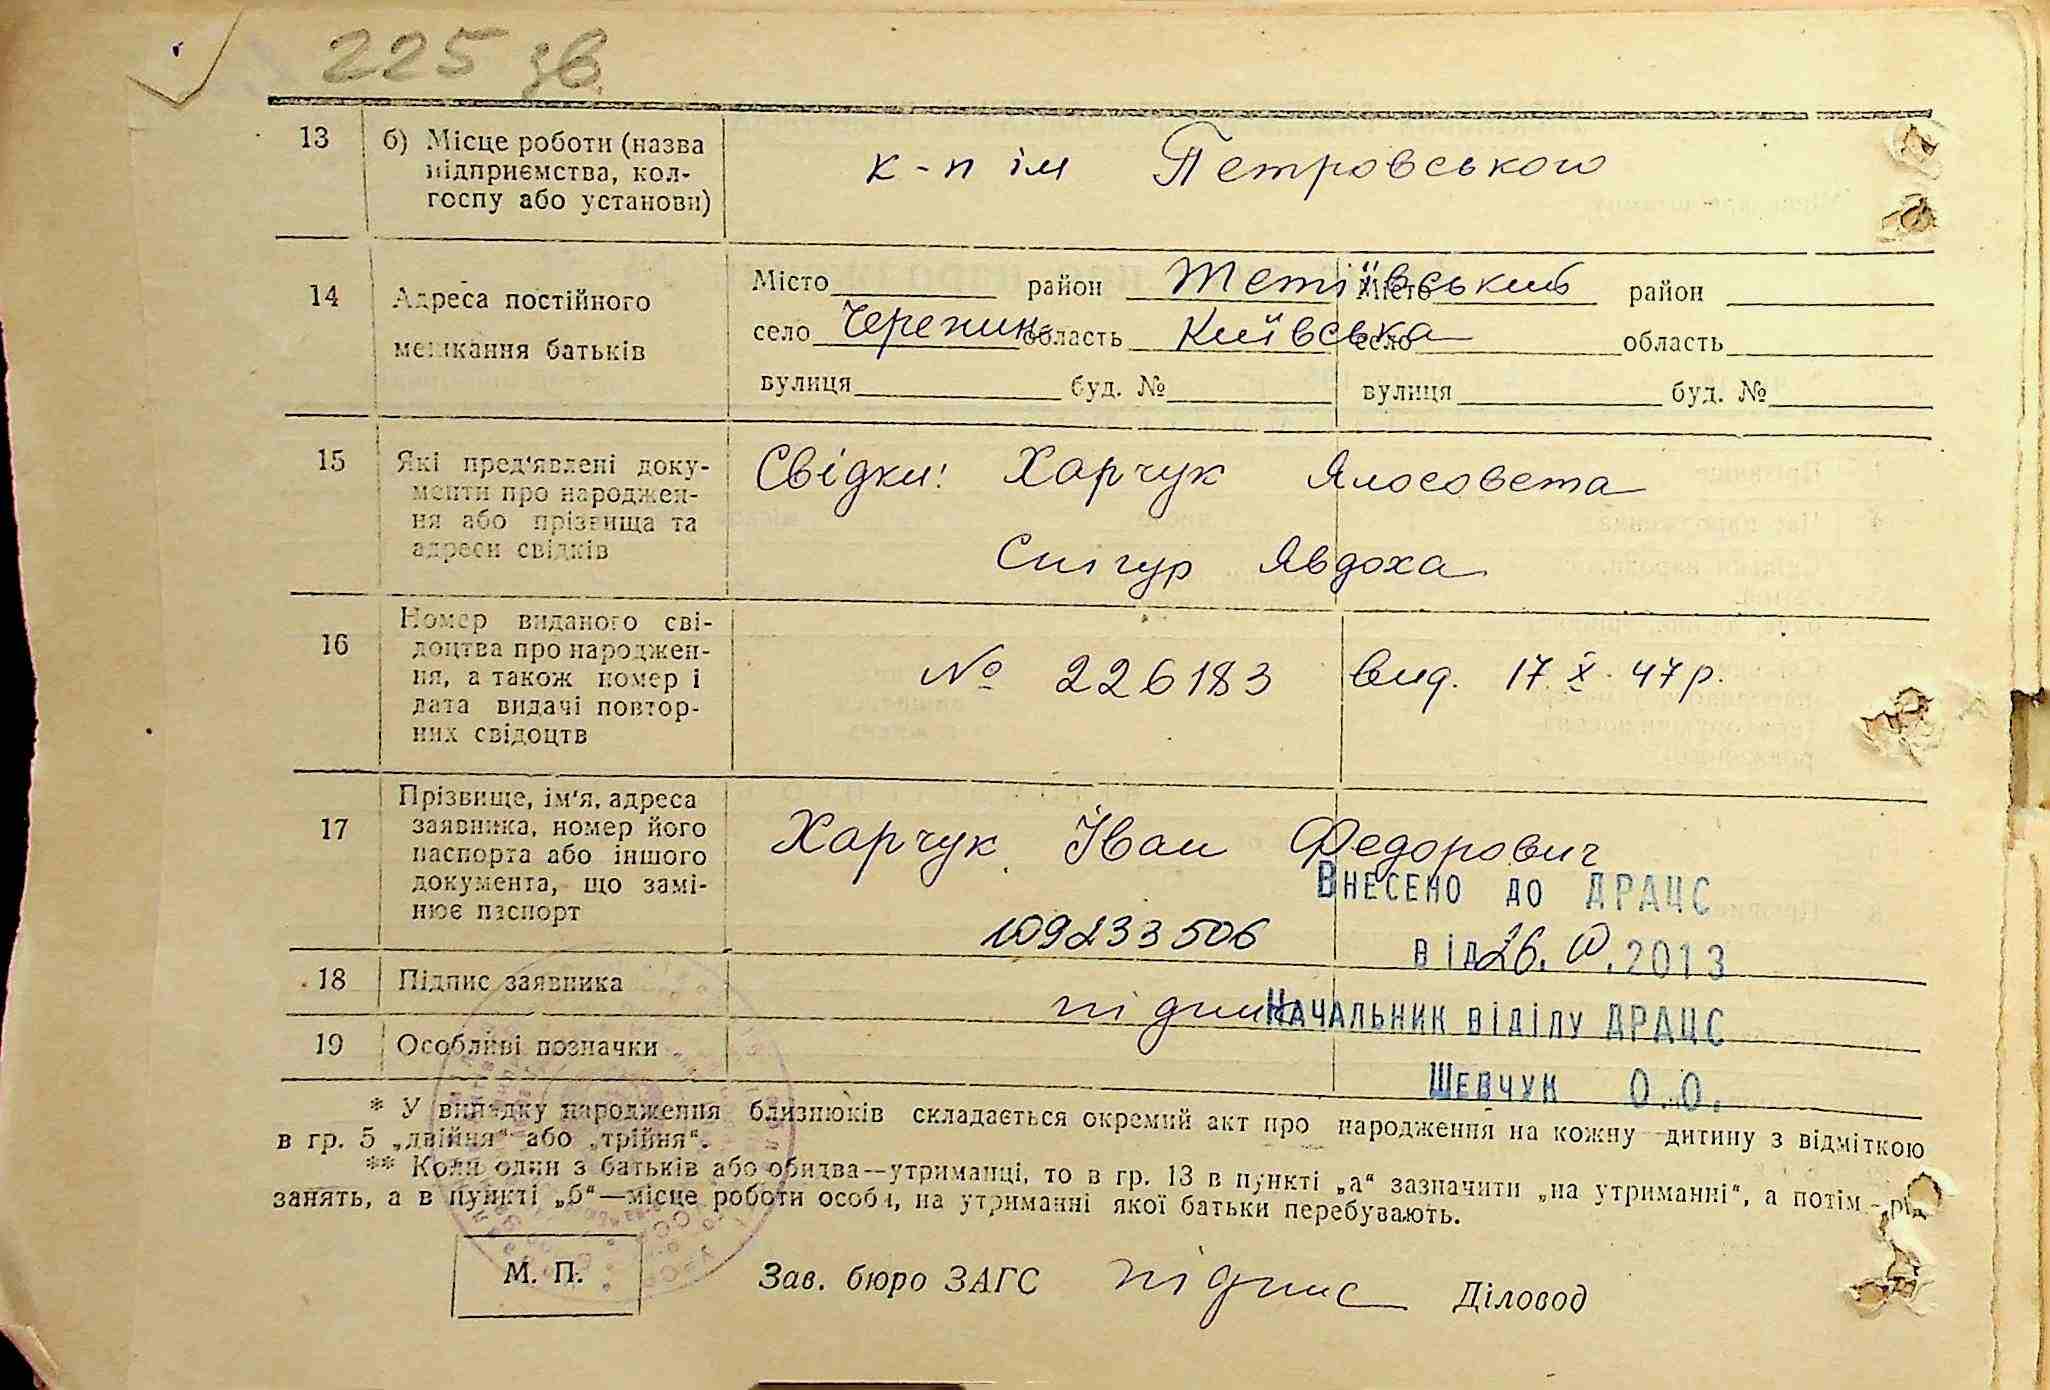 225 зв.
13 б) Місце роботи (назва
підприємства, кол-
госпу або установи)
к-п ім Петровського
14 Адреса постійного
мешкання батьків
Місто район Тетіївський Місто район
село Черепин область Київська село область
вулиця буд. № вулиця буд. №
15 Які пред'явлені доку-
менти про народжен-
ня або прізвища та
адреси свідків
Свідки: Харчук Ялосовета
Снігур Явдоха
16 Номер виданого сві-
доцтва про народжен-
ня, а також номер і
дата видачі повтор-
них свідоцтв
№ 226183 вид. 17 X. 47 р.
17 Прізвище, ім'я, адреса
заявника, номер його
паспорта або іншого
документа, що замі-
нює паспорт
Харчук Іван Федорович
109233506
Внесено до ДРАЦС
від 26. .2013
Начальник відділу ДРАЦС
Шевчук О.О.
18 Підпис заявника
підпис
19 Особливі позначки
* У випадку народження близнюків складається окремий акт про народження на кожну дитину з відміткою
в гр. 5 „двійня“ або „трійня“.
** Коли один з батьків або обидва—утриманці, то в гр. 13 в пункті „а“ зазначити „на утриманні“, а потім — рід
занять, а в пункті „б“—місце роботи особи, на утриманні якої батьки перебувають.
М. П.
Зав. бюро ЗАГС підпис Діловод